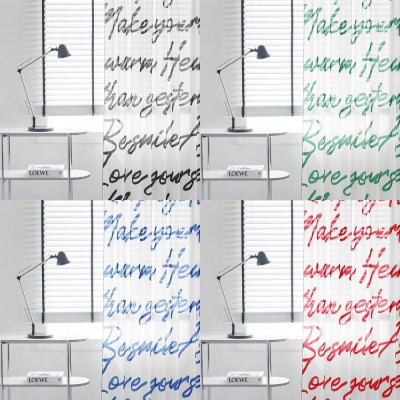 Make your
warm Hea
than yester
Besmile
Love yourse
LOEWE
Make your
warm Hea
than yester
Besmile
Love yourse
LOEWE
Make your
warm Hea
than yester
Besmile
Love yourse
LOEWE
Make your
warm Hea
than yester
Besmile
Love yourse
LOEWE